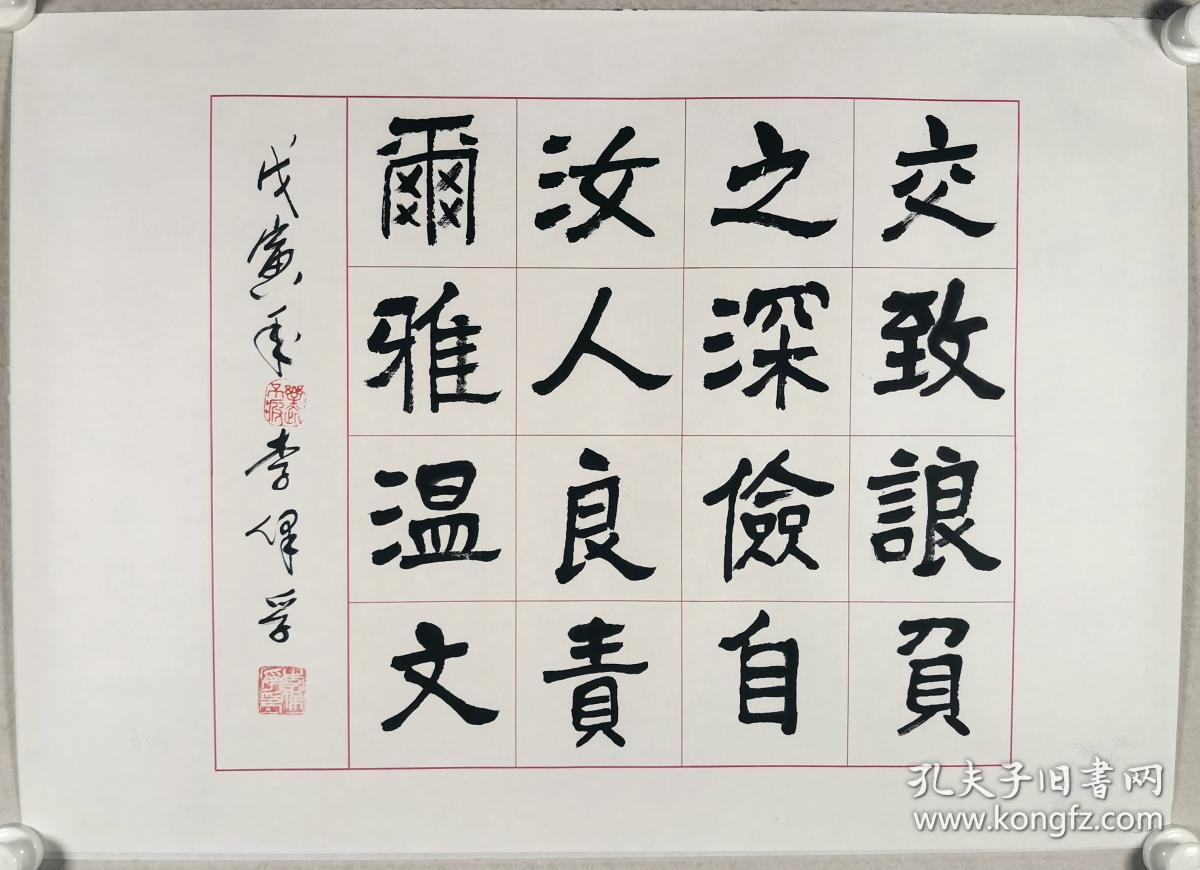 交致誏負
之深儉自
汝人良責
爾雅温文
戊寅年 李 孚
孔夫子旧书网
www.kongfz.com